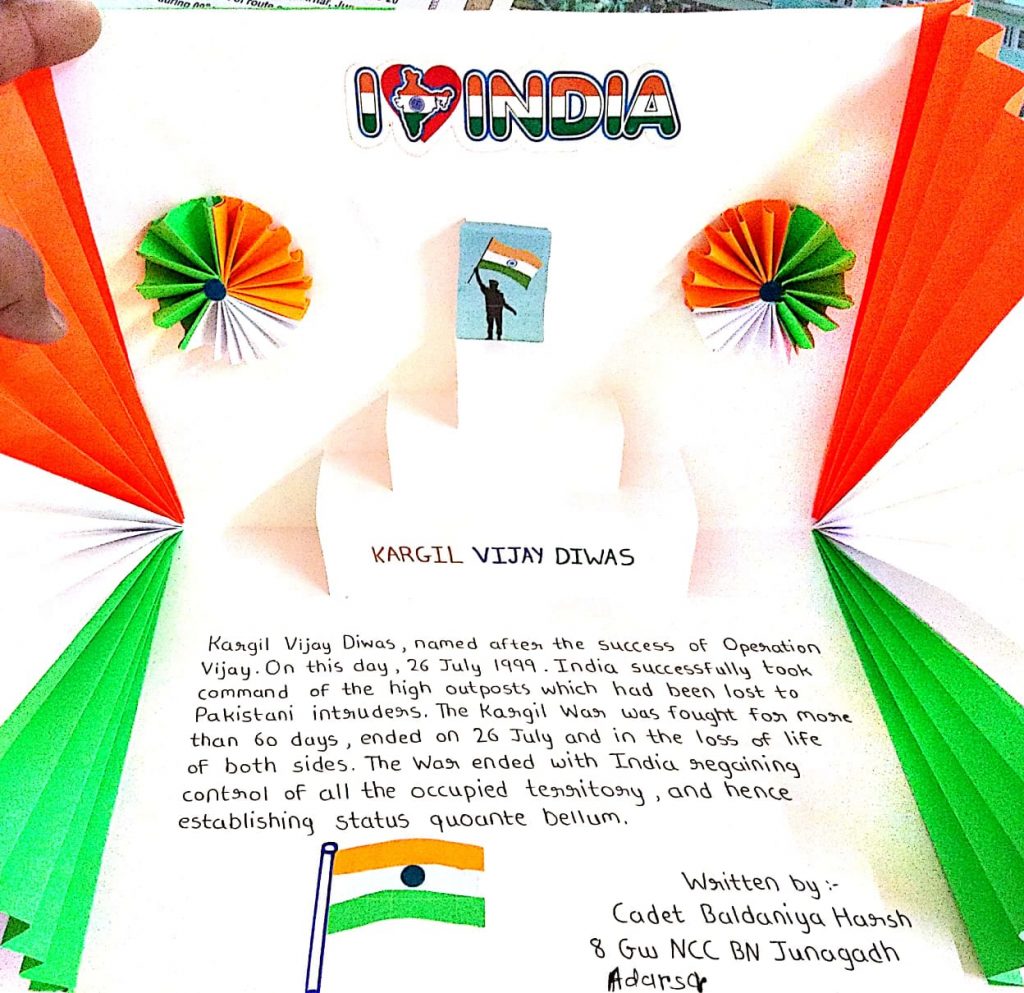 of route
I INDIA
KARGIL VIJAY DIWAS
Kargil Vijay Diwas, named after the success of Operation
Vijay. On this day, 26 July 1999. India successfully took
command of the high outposts which had been lost to
Pakistani intruders. The Kargil War was fought for more
than 60 days, ended on 26 July and in the loss of life
of both sides. The War ended with India regaining
control of all the occupied territory, and hence
establishing status quoante bellum.
Written by :-
Cadet Baldaniya Harsh
8 Guj NCC BN Junagadh